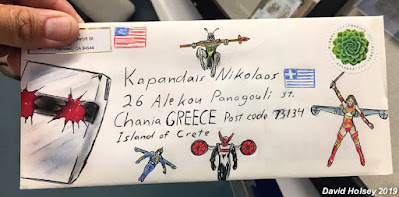 CA 94544
Kapandais Nikolaos
26 Alekou Panagouli st.
Chania GREECE Post code 73134
Island of Crete
David Holsey 2019